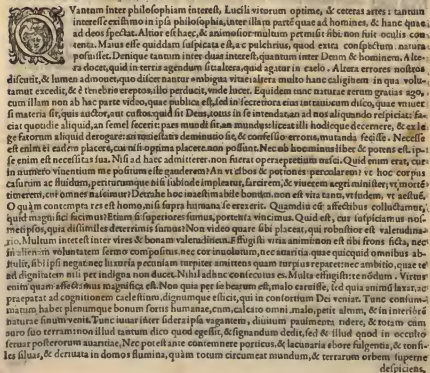 QVantum inter philosophiam interest, Lucili vitorum optime, & ceteras artes: tantum
interesse existimo in ipsa philosophia, inter illam partē quae ad homines, & hanc quae
ad deos spectat. Altior est haec, & animosior multum permisit sibi. non fuit oculis con
tenta. Maius esse quiddam suspicata est, ac pulchrius, quod extra conspectum natura
posuisset. Denique tantum inter duas interest, quantum inter Deum & hominem. Alte-
ra docet, quid in terris agendum sit: altera, quid agatur in caelo. Altera errores nostros
discutit, & lumen admouet, quo discernantur ambigua vitae: altera multo hanc caliginem in qua volu-
tamur excedit, & è tenebris ereptos, illo perducit, vnde lucet. Equidem tunc naturae rerum gratias ago,
cum illam non ab hac parte video, quae publica est, sed in secretiora eius intraui: cum disco, quae vniuer
si materia sit, quis auctor, aut custos. quid sit Deus, totus in se intendat, an ad nos aliquando respiciat: fa-
ciat quotidie aliquid, an semel fecerit: pars mundi sit, an mundus: liceat illi hodieque decernere, & ex le
ge fatorum aliquid derogare: an maiestatis deminutio sit, & confessio erroris, mutanda fecisse. Necesse
est enim ei eadem placere, cui nisi optima placere non possint. Nec ob hoc minus liber & potens est. ip-
se enim est necessitas sua. Nisi ad haec admitterer, non fuerat operaepretium nasci. Quid enim erat, cur
in numero viuentium me positum esse gauderem? An vt cibos & potiones percolarem? vt hoc corpus
casurum ac fluidum, periturumque nisi subinde impleatur, farcirem, & viuerem aegri minister, vt mortē
timerem, cui omnes nascimur? Detrahe hoc inaestimabile bonum, non est vita tanti, vt sudem, vt aestuē.
O quàm contempta res est homo, nisi supra humana se erexerit. Quamdiu cū affectibus colluctamur,
quid magnifici facimus? Etiam si superiores sumus, portenta vincimus. Quid est, cur suspiciamus nos-
metipsos, quia dissimiles deterrimis sumus? Non video quare sibi placeat, qui robustior est valetudina-
rio. Multum interest inter vires & bonam valetudinem. Effugisti vitia animi: non est tibi frons ficta, nec
in alienam voluntatem sermo compositus, nec cor inuolutum, nec auaritia quae quicquid omnibus ab-
stulit, sibi ipsi neget: nec luxuria pecuniam turpiter amittens quam turpius reparet: nec ambitio, quae te
ad dignitatem nisi per indigna non ducet. Nihil adhuc consecutus es. Multa effugisti: te nōdum. Virtus
enim quam affectamus magnifica est. Non quia per se bearum est, malo caruisse, sed quia animū laxat, ac
praeparat ad cognitionem caelestium, dignumque efficit, qui in consortium Dei veniat. Tunc consum-
matum habet plenumque bonum sortis humanae, cum, calcato omni, malo, petit altum, & in interiorē
naturae sinum venit. Tunc iuuat inter sidera ipsa vagantem, diuitum pauimenta ridere, & totam cum
auro suo terram: non illud tantum dico quod egessit, & signandum dedit, sed & illud quod in occulto
seruat posterorum auaritiae, Nec potest ante contemnere porticus, & lacunaria ebore fulgentia, & tonsi-
les siluas, & deriuata in domos flumina, quàm totum circumeat mundum, & terrarum orbem superne
despiciens,